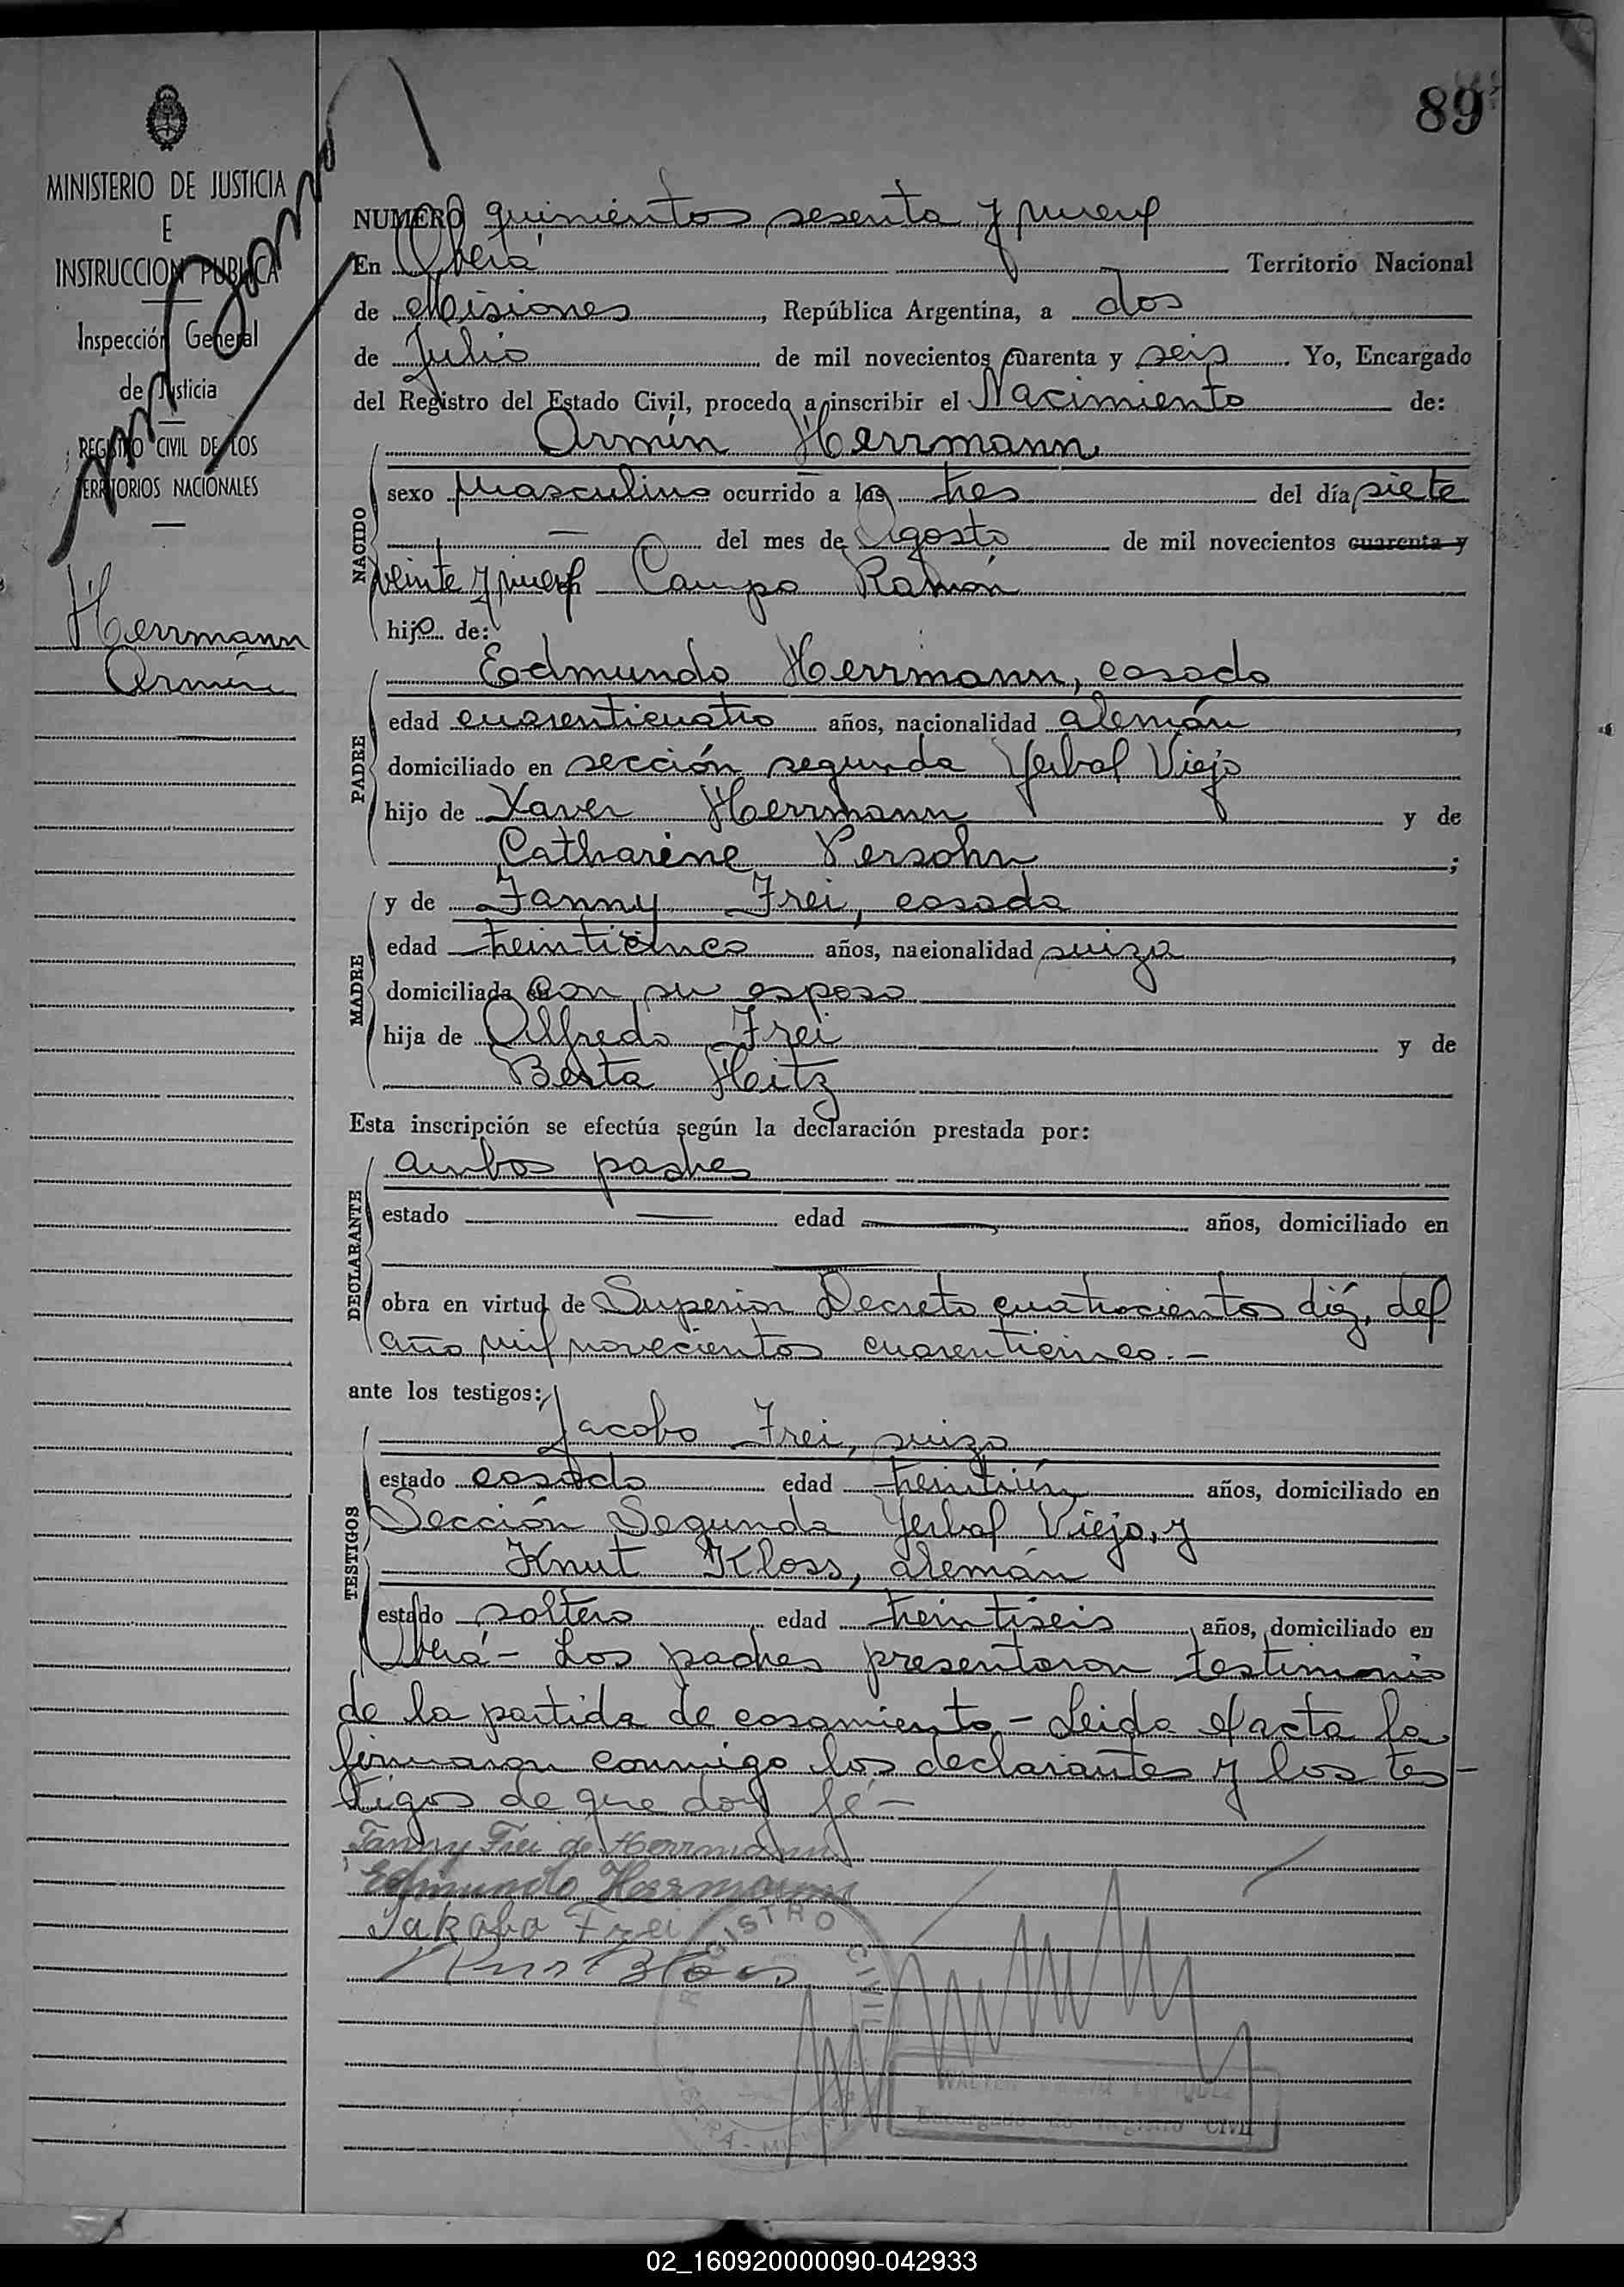 89
MINISTERIO DE JUSTICIA
E
INSTRUCCION PUBLICA
Inspección General
de Justicia
REGISTRO CIVIL DE LOS
TERRITORIOS NACIONALES
Herrmann
Armin
NUMERO quinientos sesenta y nueve
En Oberá Territorio Nacional
de Misiones, República Argentina, a dos
de Julio de mil novecientos cuarenta y seis. Yo, Encargado
del Registro del Estado Civil, procedo a inscribir el Nacimiento de:
Armín Herrmann
NACIDO
sexo masculino ocurrido a las tres del día siete
del mes de Agosto de mil novecientos cuarenta y
veinte y nueve Campo Ramón
hijo de:
Edmundo Herrmann, casado
PADRE
edad cuarenticuatro años, nacionalidad alemán
domiciliado en sección segunda Yerbal Viejo
hijo de Xaver Herrmann y de
Catharine Persohn;
y de Fanny Frei, casada
MADRE
edad treinticinco años, nacionalidad suiza
domiciliada en con su esposo
hija de Alfredo Frei y de
Berta Heitz
Esta inscripción se efectúa según la declaración prestada por:
ambos padres
DECLARANTE
estado — edad — años, domiciliado en
obra en virtud de Superior Decreto cuatrocientos diéz, del
año mil novecientos cuarenticinco.-
ante los testigos:
Jacobo Frei, suizo
TESTIGOS
estado casado edad treintiún años, domiciliado en
Sección Segunda Yerbal Viejo, y
Knut Kloss, alemán
estado soltero edad treintiseis años, domiciliado en
Oberá- Los padres presentaron testimonio
de la partida de casamiento- Leida el acta la
firmaron conmigo los declarantes y los tes-
tigos de que doy fé-
Fanny Frei de Herrmann
Edmundo Herrmann
Jakobo Frei
REGISTRO CIVIL
Encargado de Registro Civil
02_160920000090-042933